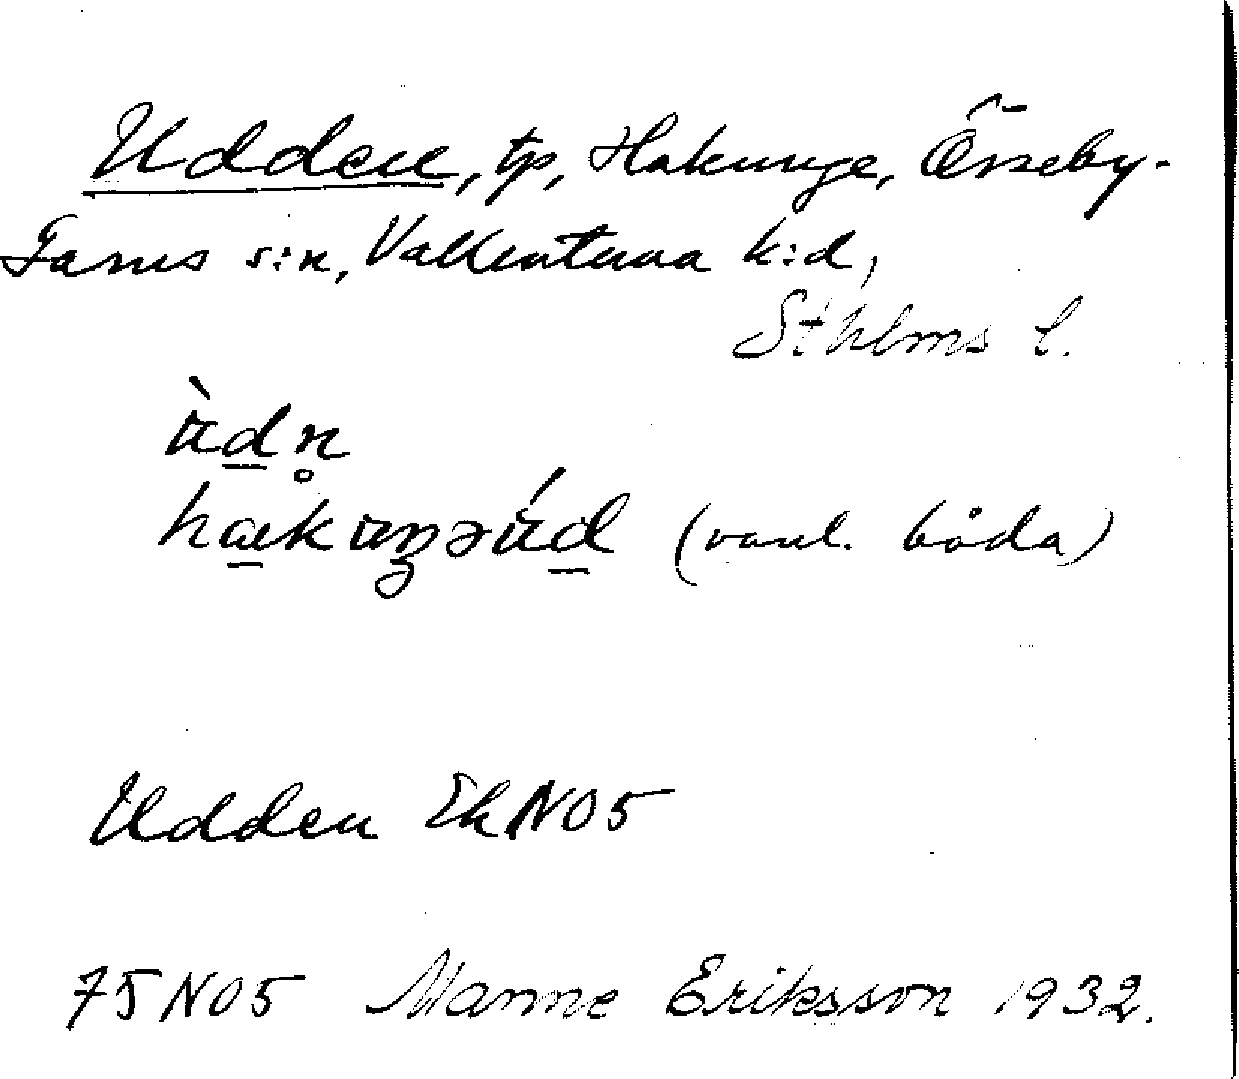 Udden, tp, Hakunge, Össeby-
Garns s:n, Vallentuna k:d,
Sthlms l.
ùdn̥
hækuŋəúd (vanl. båda)
Udden EkN05
75N05 Manne Eriksson 1932.